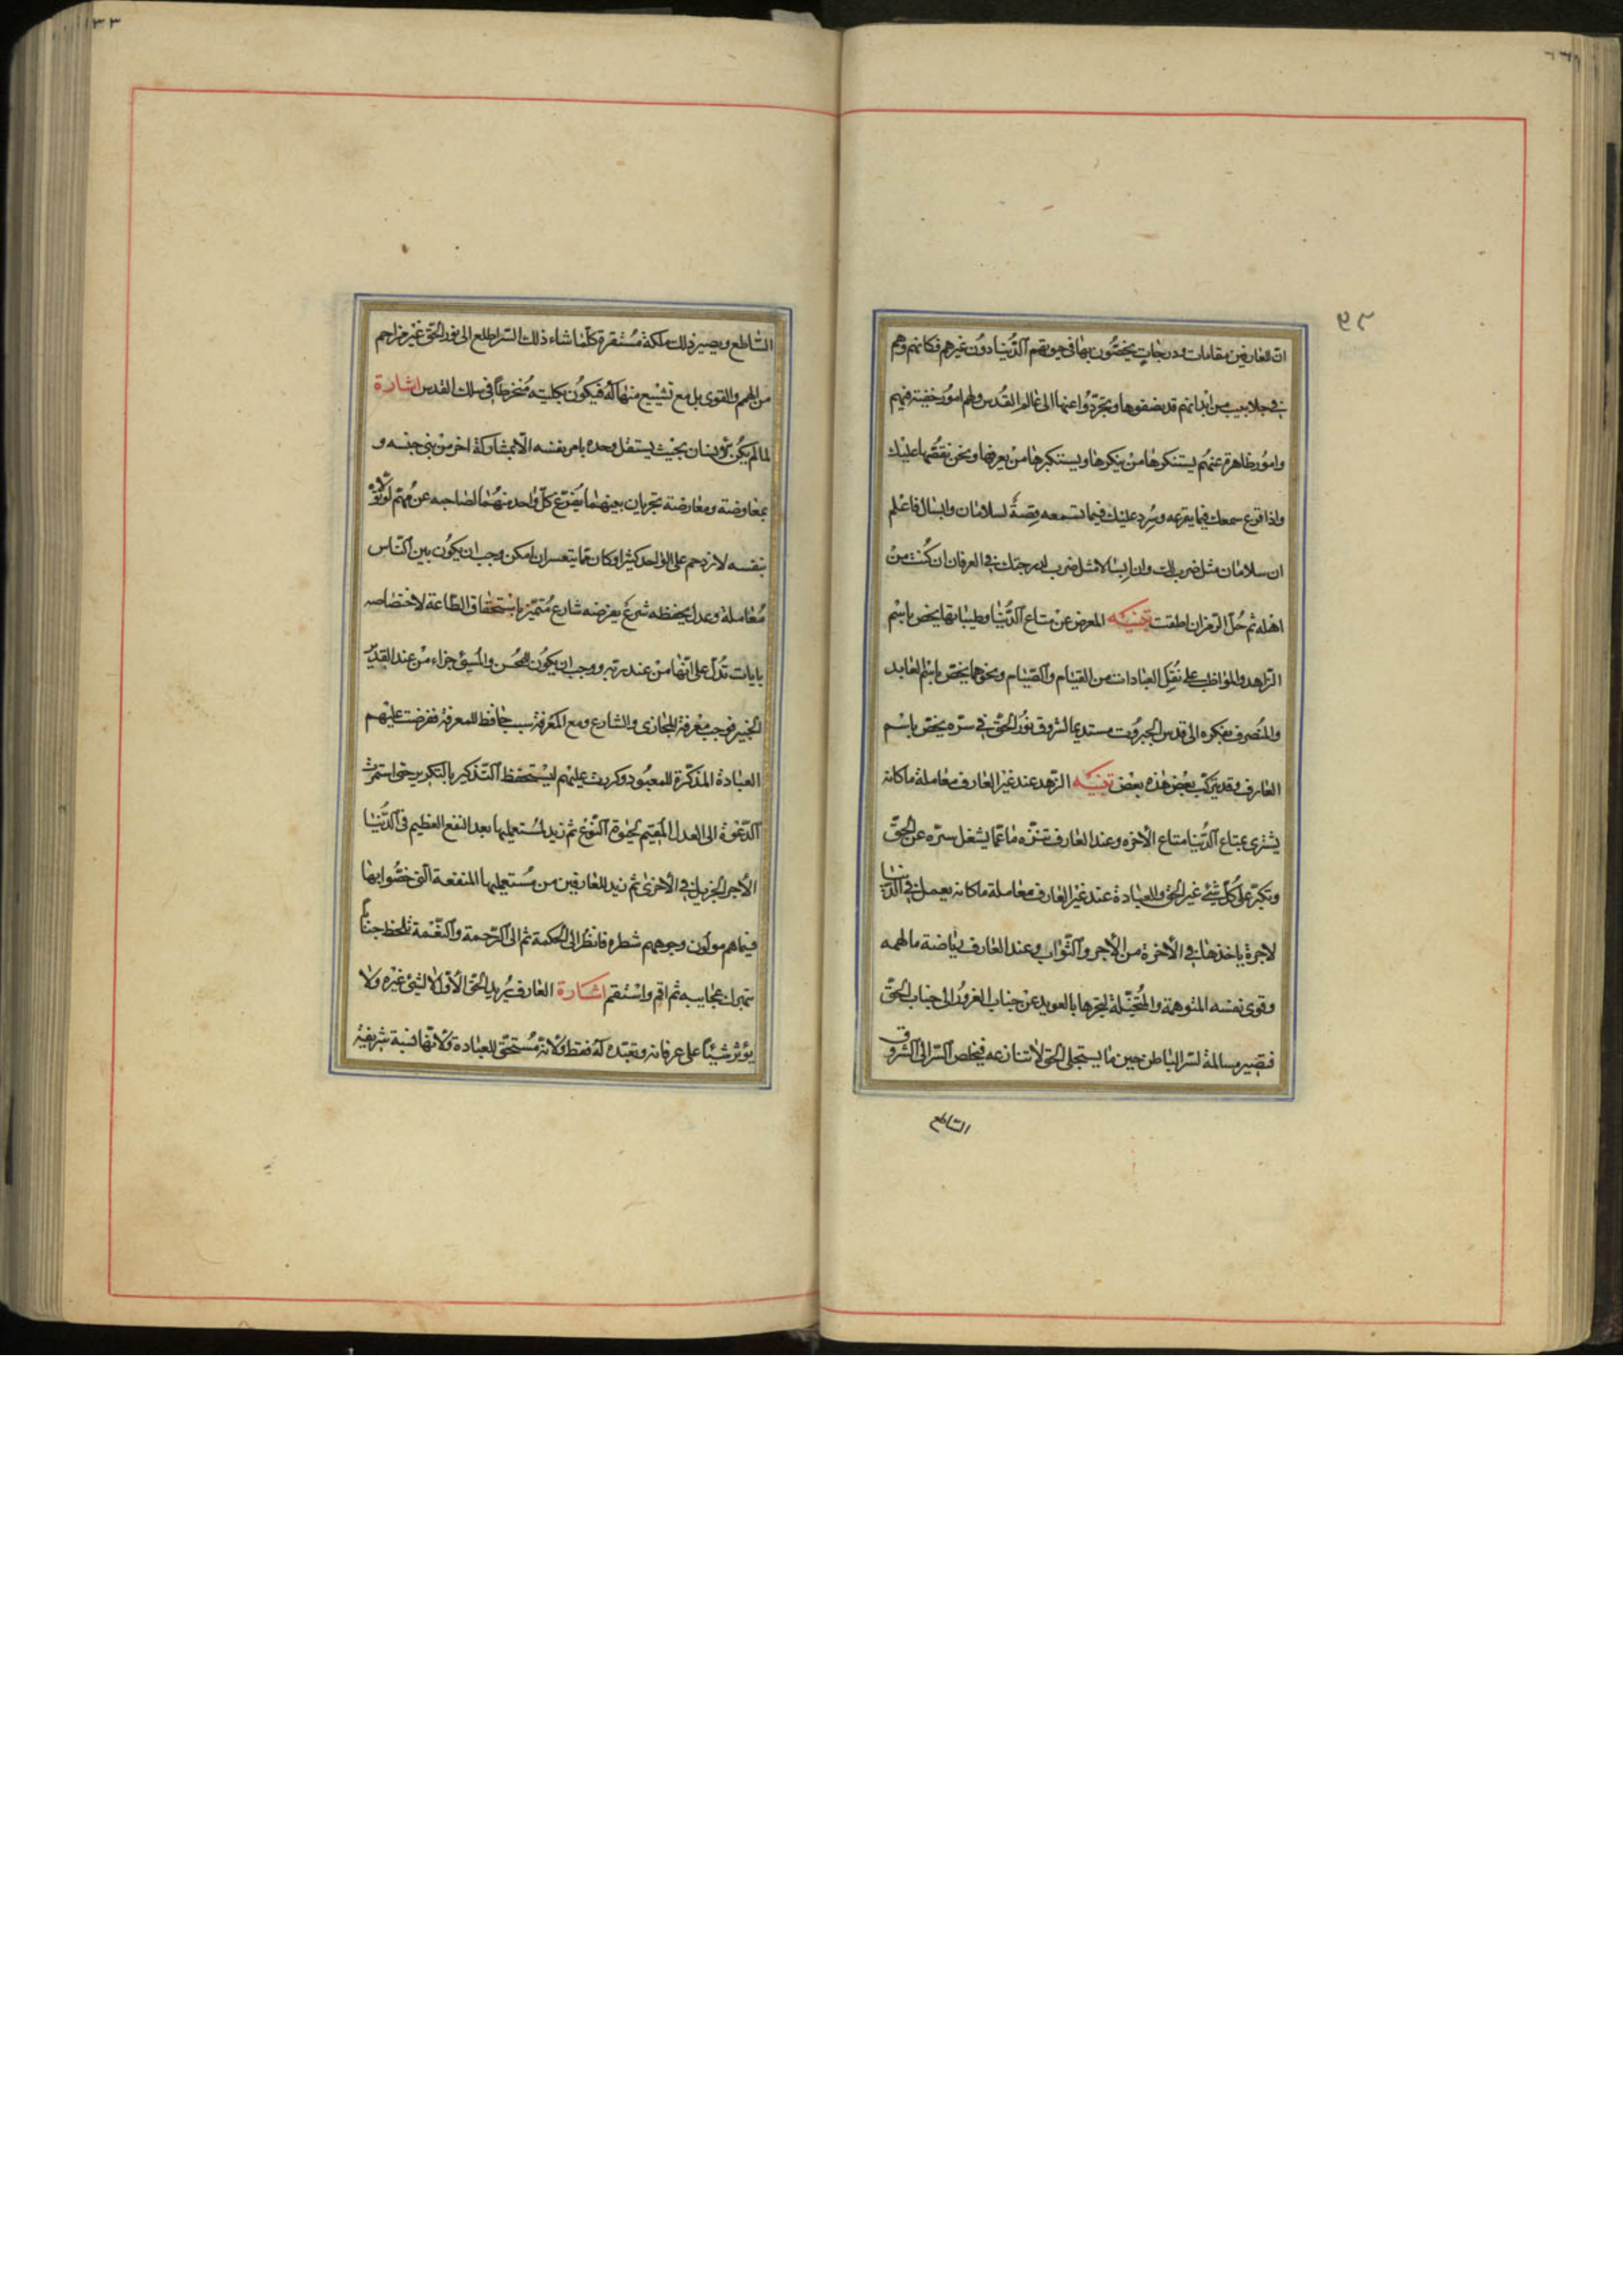 ان للعارفين مقامات ودرجات يخصّون بها فى حيوتهم الدّنيا دون غيرهم فكانهم وهم
فى جلابيب من ابدانهم قد نضوها وتجرّدوا عنها الى عالم القدس ولهم امور خفيّة فيهم
وامور ظاهرة عنهم يستنكرها من ينكرها ويستكبرها من يعرفها ونحن نقصّها عليك
واذا قرع سمعك فيما يقرعه وسرد عليك فيما تسمعه قصةً لسلامان وابسال فاعلم
ان سلامان مثل ضرب لك وان ابسالا مثل ضرب لدرجتك فى العرفان ان كنت من
اهله ثم حُلّ الرّمز ان اطقت تنبيه المعرض عن متاع الدّنيا وطيباتها يخص باسم
الزّاهد والمواظب على نفل العبادات من القيام والصّيام ونحوهما يخصّ باسم العابد
والمنصرف بفكره الى قدس الجبروت مستديما لشروق نور الحقّ فى سرّه يخصّ باسم
العارف وقد يتركّب بعض هذه بعض تنبيه الزّهد عند غير العارف معاملة ما كانه
يشترى بمتاع الدّنيا متاع الآخره وعند العارف تنزّه ما عمّا يشغل سرّه عن الحقّ
وتكبّر على كلّ شئ غير الحق والعبادة عند غير العارف معاملة ما كانه يعمل فى الدّنيا
لاجرة ياخذها فى الآخرة من الأجر والثّواب وعند العارف رياضة ما لهممه
وقوى نفسه المتوهمة والمتخيّلة ليجرها بالتعويد عن جناب الغرور الى جناب الحقّ
فتصير مسالمة لسّر الباطن حين ما يستجلى الحق لا تنازعه فيخلص السّر الى الشّروق
السّاطع
السّاطع ويصير ذلك ملكة مستقرة كلّما شاء ذلك السّر اطلع الى نور الحق غير مزاحم
من الهمم والقوى بل مع تشييع منها له فيكون بكليته منخرطاً فى سلك القدس اشارة
لما لم يكن الانسان بحيث يستقل وحده بامر نفسه الّا بمشاركة اخر من بنى جنسه و
بمعاوضة ومعارضة تجريان بينهما يفرّغ كلّ واحد منهما لصاحبه عن مهمّ لو تولّاه
بنفسه لازدحم على الواحد كثير او كان ممّا يتعسر ان امكن وجب ان يكون بين النّاس
معاملة وعدل يحفظه شرع يفرضه شارع متميّز باستحقاق الطّاعة لاختصاصه
بايات تدلّ على انّها من عند ربّه ووجب ان يكون للمحسن والمسئ جزاء من عند القدير
الخبير فوجب معرفة المجازى والشارع ومع المعرفة سبب حافظ للمعرفة ففرضت عليهم
العبادة المذكّرة للمعبود وكررت عليهم ليستحفظ التذكير بالتكرير حتى استمرّت
الدّعوة الى العدل المقيم لحيوة النّوع ثم زيد لمستعمليها بعد النفع العظيم فى الدّنيا
الأجر الجزيل فى الأخرى ثم زيد للعارفين من مستعمليها المنفعة الّتى خصّوا بها
فيما هم مولّون وجوههم شطره فانظر الى الحكمة ثم الى الرّحمة والنّعمة تلحظ جناباً
تبهرك عجايبه ثم اقم واستقم اشارة العارف يريد الحق الأوّل لا لشئ غيره ولا
يؤثر شيئاً على عرفانه وتعبّده له فقط ولأنّه مستحق للعبادة ولأنّها نسبة شريفة